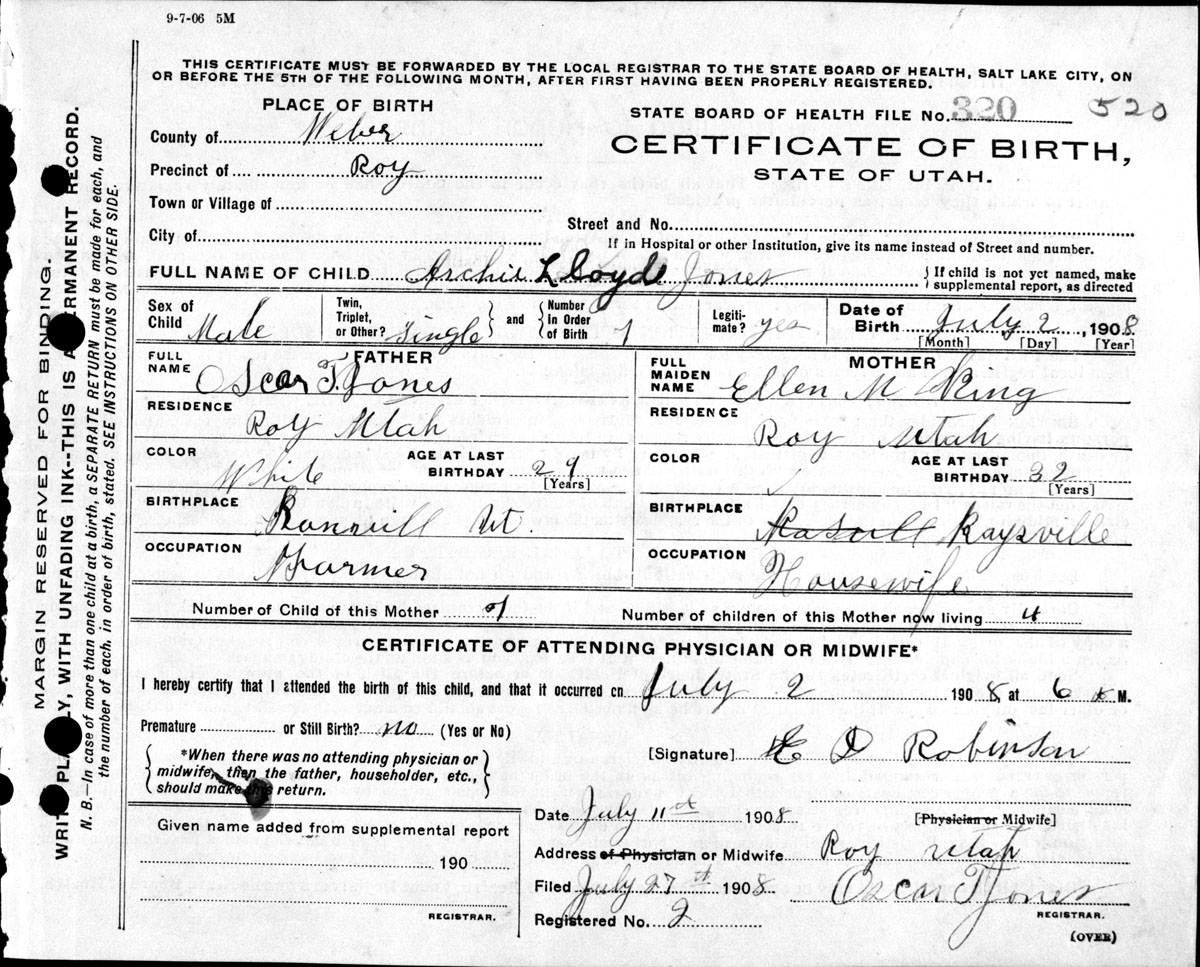 9-7-06 5M
THIS CERTIFICATE MUST BE FORWARDED BY THE LOCAL REGISTRAR TO THE STATE BOARD OF HEALTH, SALT LAKE CITY, ON
OR BEFORE THE 5TH OF THE FOLLOWING MONTH, AFTER FIRST HAVING BEEN PROPERLY REGISTERED.
PLACE OF BIRTH
STATE BOARD OF HEALTH FILE No. 320 520
County of Weber
CERTIFICATE OF BIRTH,
Precinct of Roy
STATE OF UTAH.
Town or Village of
Street and No.
City of
If in Hospital or other Institution, give its name instead of Street and number.
FULL NAME OF CHILD Archie Lloyde Jones
{If child is not yet named, make
supplemental report, as directed
Sex of Child Male
Twin, Triplet, or Other? Single } and { Number In Order of Birth
Legitimate? yes
Date of Birth July 2, 1908
[Month] [Day] [Year]
FATHER
FULL NAME Oscar T Jones
MOTHER
FULL MAIDEN NAME Ellen M King
RESIDENCE Roy Utah
RESIDENCE Roy Utah
COLOR White
AGE AT LAST BIRTHDAY 29
[Years]
COLOR
AGE AT LAST BIRTHDAY 32
[Years]
BIRTHPLACE Ut.
BIRTHPLACE Kaysville
OCCUPATION Farmer
OCCUPATION Housewife
Number of Child of this Mother 7
Number of children of this Mother now living 4
CERTIFICATE OF ATTENDING PHYSICIAN OR MIDWIFE*
I hereby certify that I attended the birth of this child, and that it occurred on July 2 1908 at 6 M.
Premature or Still Birth? no (Yes or No)
*When there was no attending physician or
midwife, then the father, householder, etc.,
should make this return.
[Signature] E D Robinson
[Physician or Midwife]
Date July 11 1908
Given name added from supplemental report
190
REGISTRAR.
Address of Physician or Midwife Roy Utah
Filed July 27th 1908 Oscar T Jones
REGISTRAR.
Registered No. 2
(OVER)
MARGIN RESERVED FOR BINDING.
WRITE PLAINLY, WITH UNFADING INK--THIS IS A PERMANENT RECORD.
N. B.—In case of more than one child at a birth, a SEPARATE RETURN must be made for each, and
the number of each, in order of birth, stated. SEE INSTRUCTIONS ON OTHER SIDE.